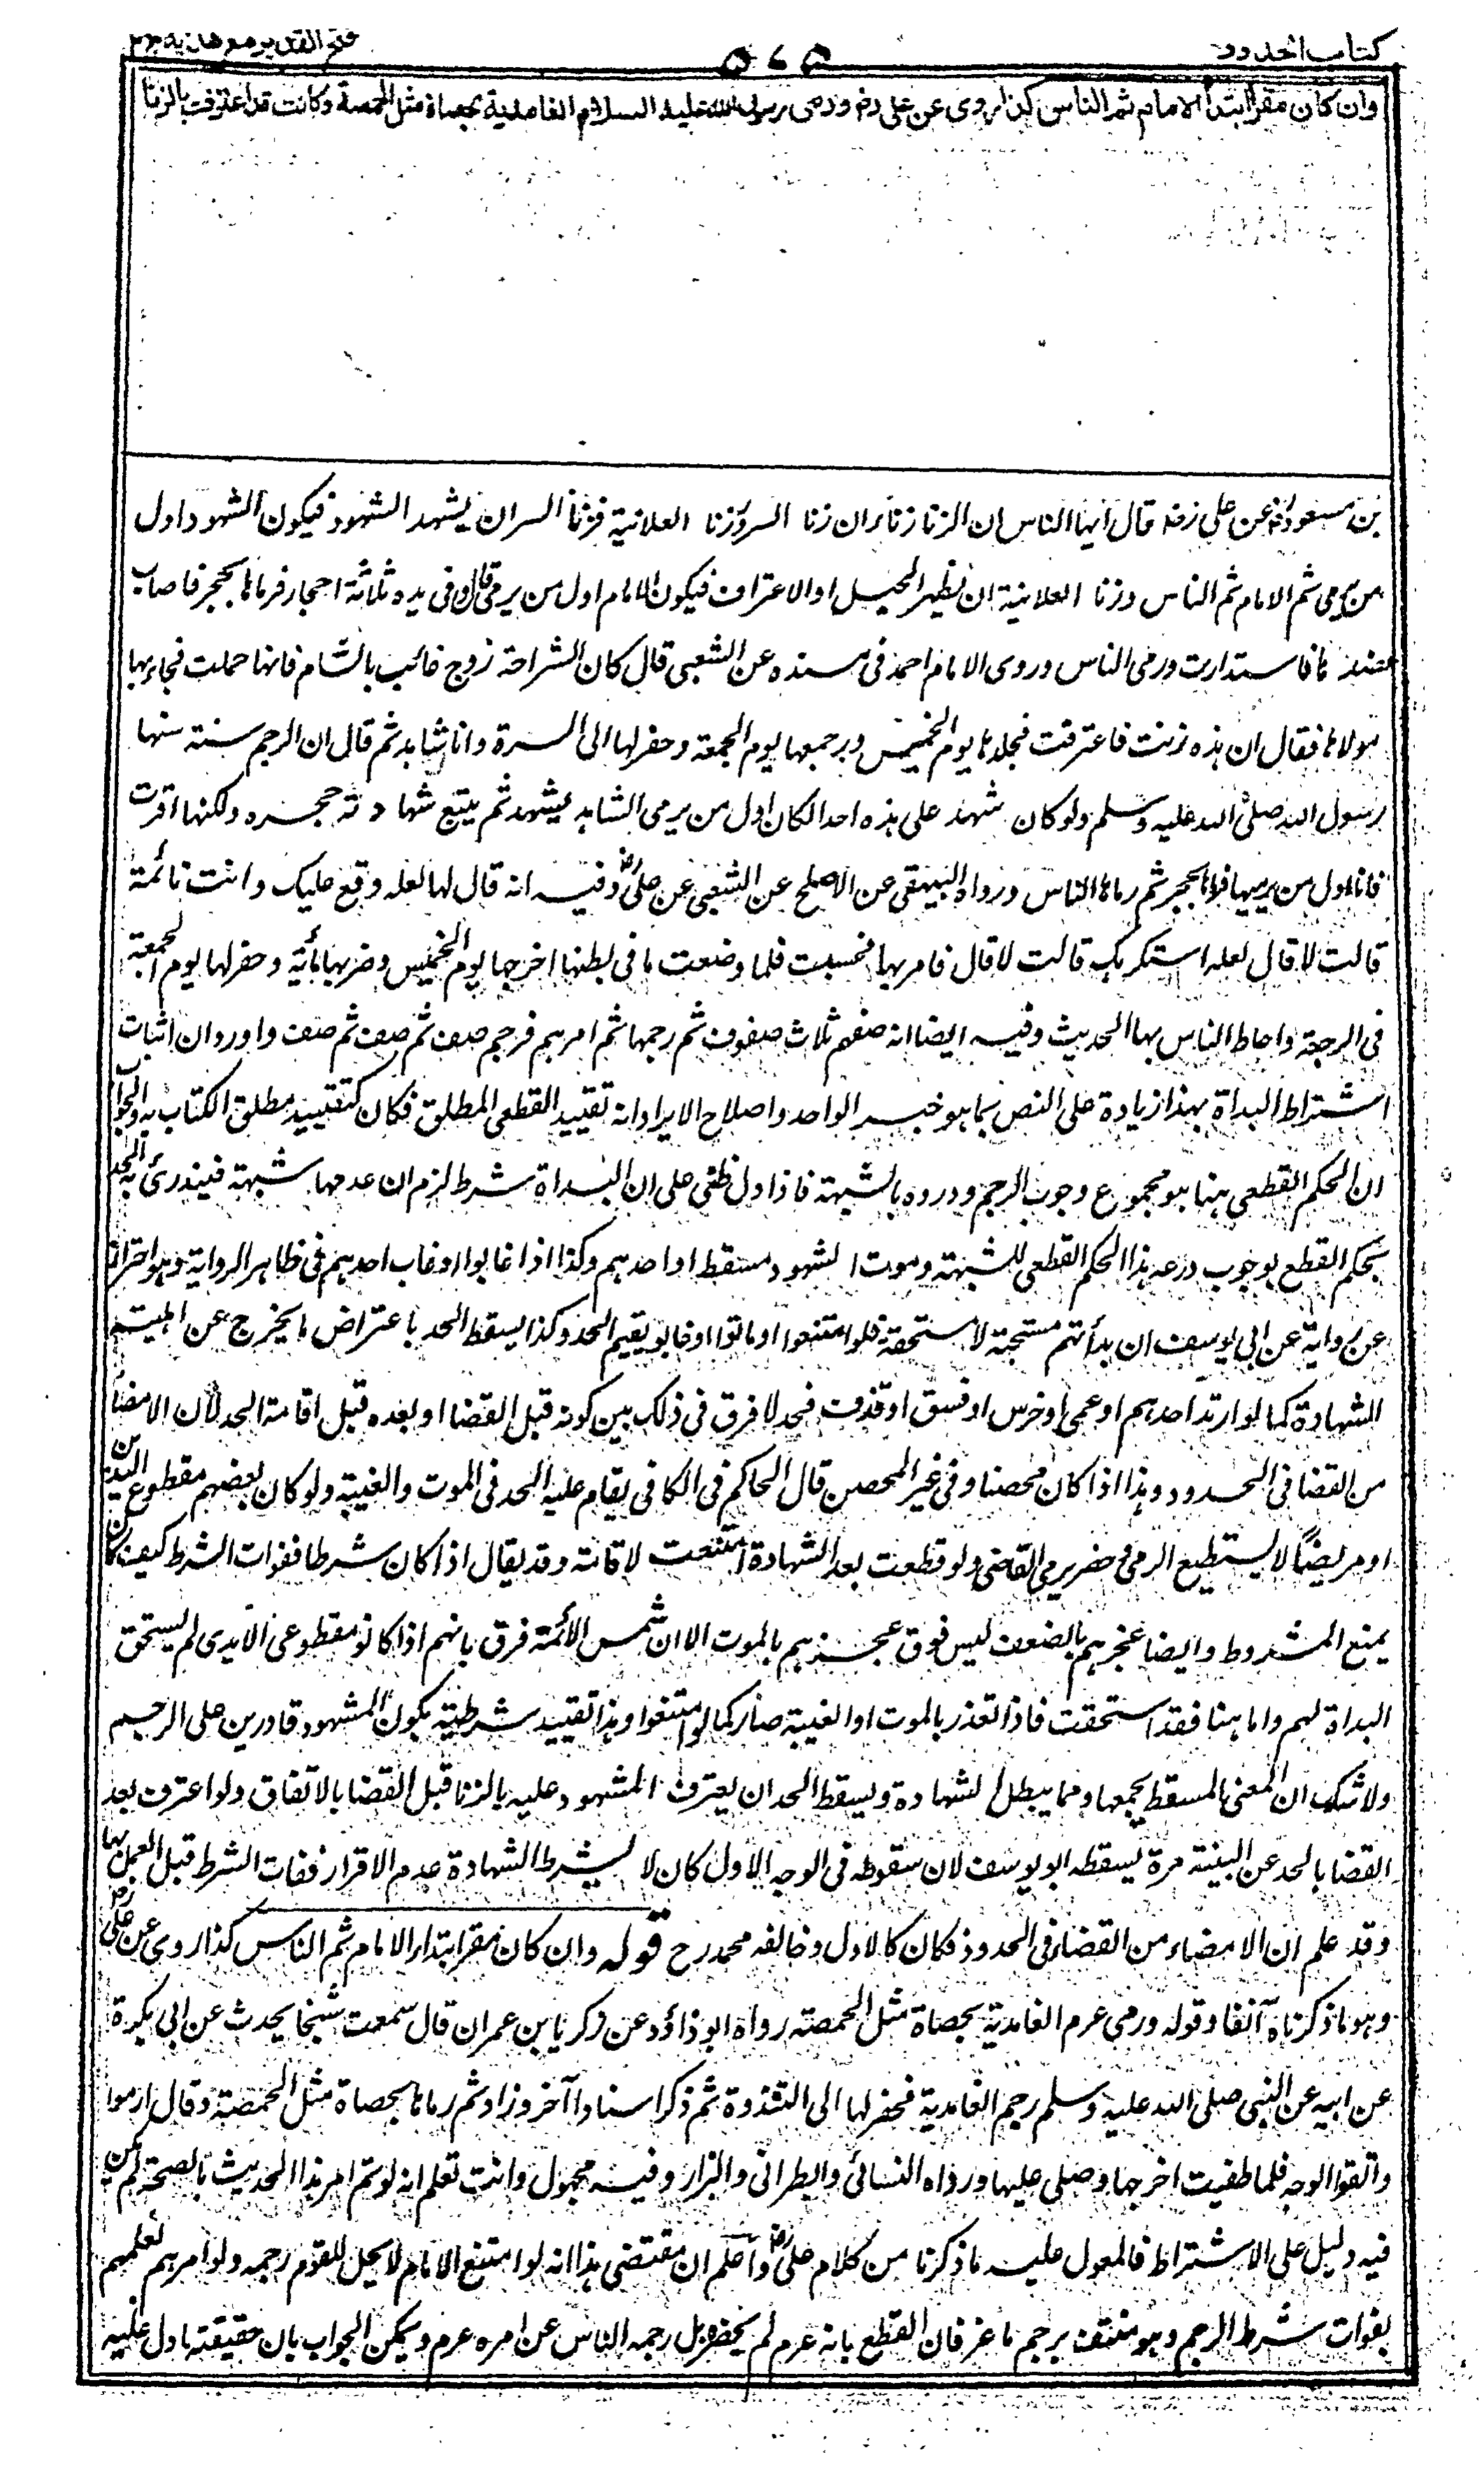 كتاب الحدود
٥٧٥
فتح القدير مع هدايه ج٢
وان كان مقرا ابتدأ الامام ثم الناس كذا روى عن على رض ورمى رسول الله عليه السلام الغامدية بحصاة مثل الحمصة وكانت قد اعترفت بالزنا
بن مسعود عن على رض قال ايها الناس ان الزنا زناءان زنا السر وزنا العلانية فزنا السر ان يشهد الشهود فيكون الشهود اول
من يرمى ثم الامام ثم الناس وزنا العلانية ان يظهر الحبل او الاعتراف فيكون الامام اول من يرمى قال وفى يده ثلاثة احجار فرماها بحجر فاصاب
صدغها فاستدارت ورمى الناس وروى الامام احمد فى مسنده عن الشعبى قال كان لشراحة زوج غائب بالشام فانها حملت فجاء بها
مولاها فقال ان هذه زنت فاعترفت فجلدها يوم الخميس ورجمها يوم الجمعة وحفر لها الى السرة وانا شاهد ثم قال ان الرجم سنة سنها
رسول الله صلى الله عليه وسلم ولو كان شهد على هذه احد لكان اول من يرمى الشاهد يشهد ثم يتبع شهادته حجره ولكنها اقرت
فانا اول من يرميها فرماها بحجر ثم رماها الناس ورواه البيهقى عن الاجلح عن الشعبى عن على رض وفيه انه قال لها لعله وقع عليك وانت نائمة
قالت لا قال لعله استكرهك قالت لا قال فامر بها فحبست فلما وضعت ما فى بطنها اخرجها يوم الخميس وضربها مائة وحفر لها يوم الجمعة
فى الرحبة واحاط الناس بها الحديث وفيه ايضا انه صفهم ثلاث صفوف ثم رجمها ثم امرهم فرجم صف ثم صف ثم صف واورد ان اثبات
اشتراط البداة بهذا زيادة على النص بما هو خبر الواحد واصلاح الايراد انه تقييد القطعى المطلق فكان كتقييد مطلق الكتاب به والجواب
ان الحكم القطعى هنا هو مجموع وجوب الرجم ودروه بالشبهة فاذا دل ظنى على ان البداة شرط لزم ان عدمها شبهة فيندرئ به الحد
بحكم القطع بوجوب درء هذا الحكم القطعى للشبهة وموت الشهود مسقط او احدهم وكذا اذا غابوا او غاب احدهم فى ظاهر الرواية وهو احتراز
عن رواية عن ابى يوسف ان بدأتهم مستحبة لا مستحقة فلو امتنعوا او ماتوا او غابوا يقيم الحد وكذا يسقط الحد باعتراض ما يخرج عن اهلية
الشهادة كما لو ارتد احدهم او عمى او خرس او فسق او قذف فحد لا فرق فى ذلك بين كونه قبل القضا او بعده قبل اقامة الحد لان الامضا
من القضا فى الحدود وهذا اذا كان محصنا وفى غير المحصن قال الحاكم فى الكافى يقام عليه الحد فى الموت والغيبة ولو كان بعضهم مقطوع اليدين
او مريضاً لا يستطيع الرمى وحضر يرمى القاضى ولو قطعت بعد الشهادة امتنعت لا قامته وقد يقال اذا كان شرطا ففوات الشرط كيف كان
يمنع المشروط وايضا عجزهم بالضعف ليس فوق عجزهم بالموت الا ان شمس الائمة فرق بانهم اذا كانوا مقطوعى الايدى لم يستحق
البداة لهم واما هنا فقد استحقت فاذا تعذر بالموت او الغيبة صار كما لو امتنعوا وهذا تقييد شرطيته بكون المشهود قادرين على الرجم
ولا شك ان المعنى المسقط يجمعها ومما يبطل الشهادة ويسقط الحد ان يعترف المشهود عليه بالزنا قبل القضا بالاتفاق ولو اعترف بعد
القضا بالحد عن البينة مرة يسقطه ابو يوسف لان سقوطه فى الوجه الاول كان لا يشرط الشهادة عدم الاقرار ففات الشرط قبل العمل بها
وقد علم ان الامضاء من القضاء فى الحدود فكان كالاول وخالفه محمد رح قوله وان كان مقرا ابتداء الامام ثم الناس كذا روى عن على رض
وهو ما ذكرناه آنفا وقوله ورمى عرم الغامدية بحصاة مثل الحمصة رواه ابو داؤد عن زكريا بن عمران قال سمعت شيخا يحدث عن ابى بكرة
عن ابيه عن النبى صلى الله عليه وسلم رجم الغامدية فحفر لها الى الثندوة ثم ذكر اسنادا آخر وزاد ثم رماها بحصاة مثل الحمصة وقال ارموا
واتقوا الوجه فلما طفيت اخرجها وصلى عليها ورواه النسائى والطبرانى والبزار وفيه مجهول وانت تعلم انه لو تم امر هذا الحديث بالصحة لم يكن
فيه دليل على الاشتراط فالمعول عليه ما ذكرنا من كلام على رض واعلم ان مقتضى هذا انه لو امتنع الامام لا يحل للقوم رجمه ولو امرهم لعلمهم
بفوات شرط الرجم وهو منتف برجم ماعز فان القطع بانه عرم لم يحضره بل رجمه الناس عن امره عرم ويمكن الجواب بان حقيقة ما دل عليه